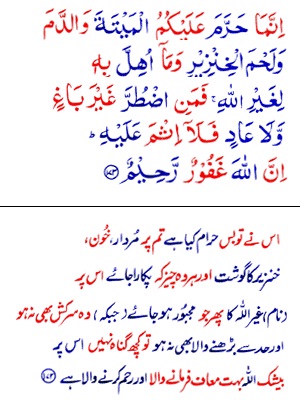 اِنَّمَا حَرَّمَ عَلَيْكُمُ الْمَيْتَةَ وَالدَّمَ
وَلَحْمَ الْخِنْزِيْرِ وَمَآ اُهِلَّ بِهٖ
لِغَيْرِ اللّٰهِ ۚ فَمَنِ اضْطُرَّ غَيْرَ بَاغٍ
وَّلَا عَادٍ فَلَآ اِثْمَ عَلَيْهِ ؕ
اِنَّ اللّٰهَ غَفُوْرٌ رَّحِيْمٌ ﴿۱۷۳﴾
اس نے تو بس حرام کیا ہے تم پر مُردار، خُون،
خنزیر کا گوشت اور ہر وہ چیز کہ پکارا جائے اس پر
(نام) غیر اللہ کا پھر جو مجبُور ہو جائے (جبکہ) وہ سرکش بھی نہ ہو
اور حد سے بڑھنے والا بھی نہ ہو تو کچھ گناہ نہیں اس پر
بیشک اللہ بہت معاف فرمانے والا اور رحم کرنے والا ہے ﴿۱۷۳﴾